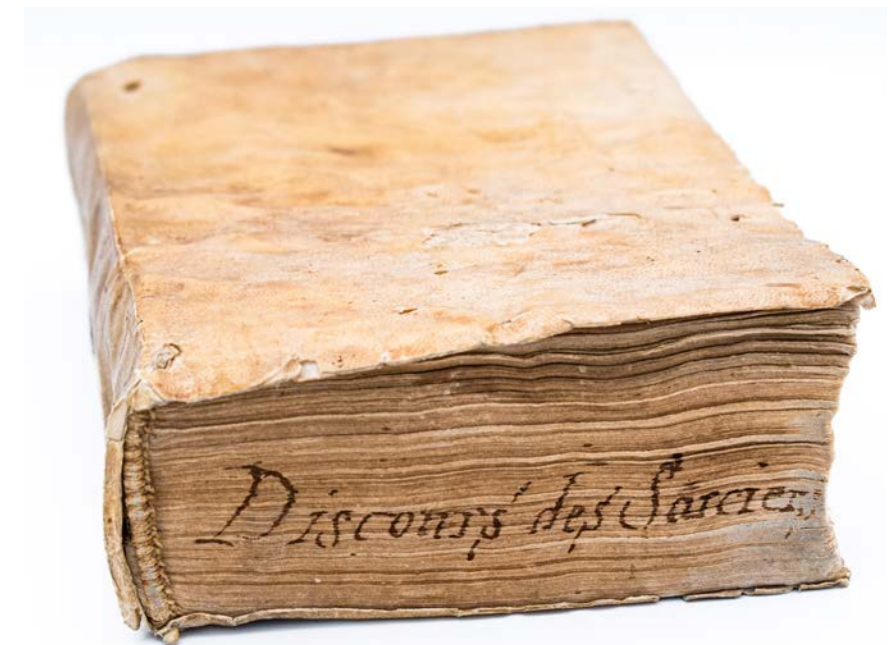 Discours des Sorciers